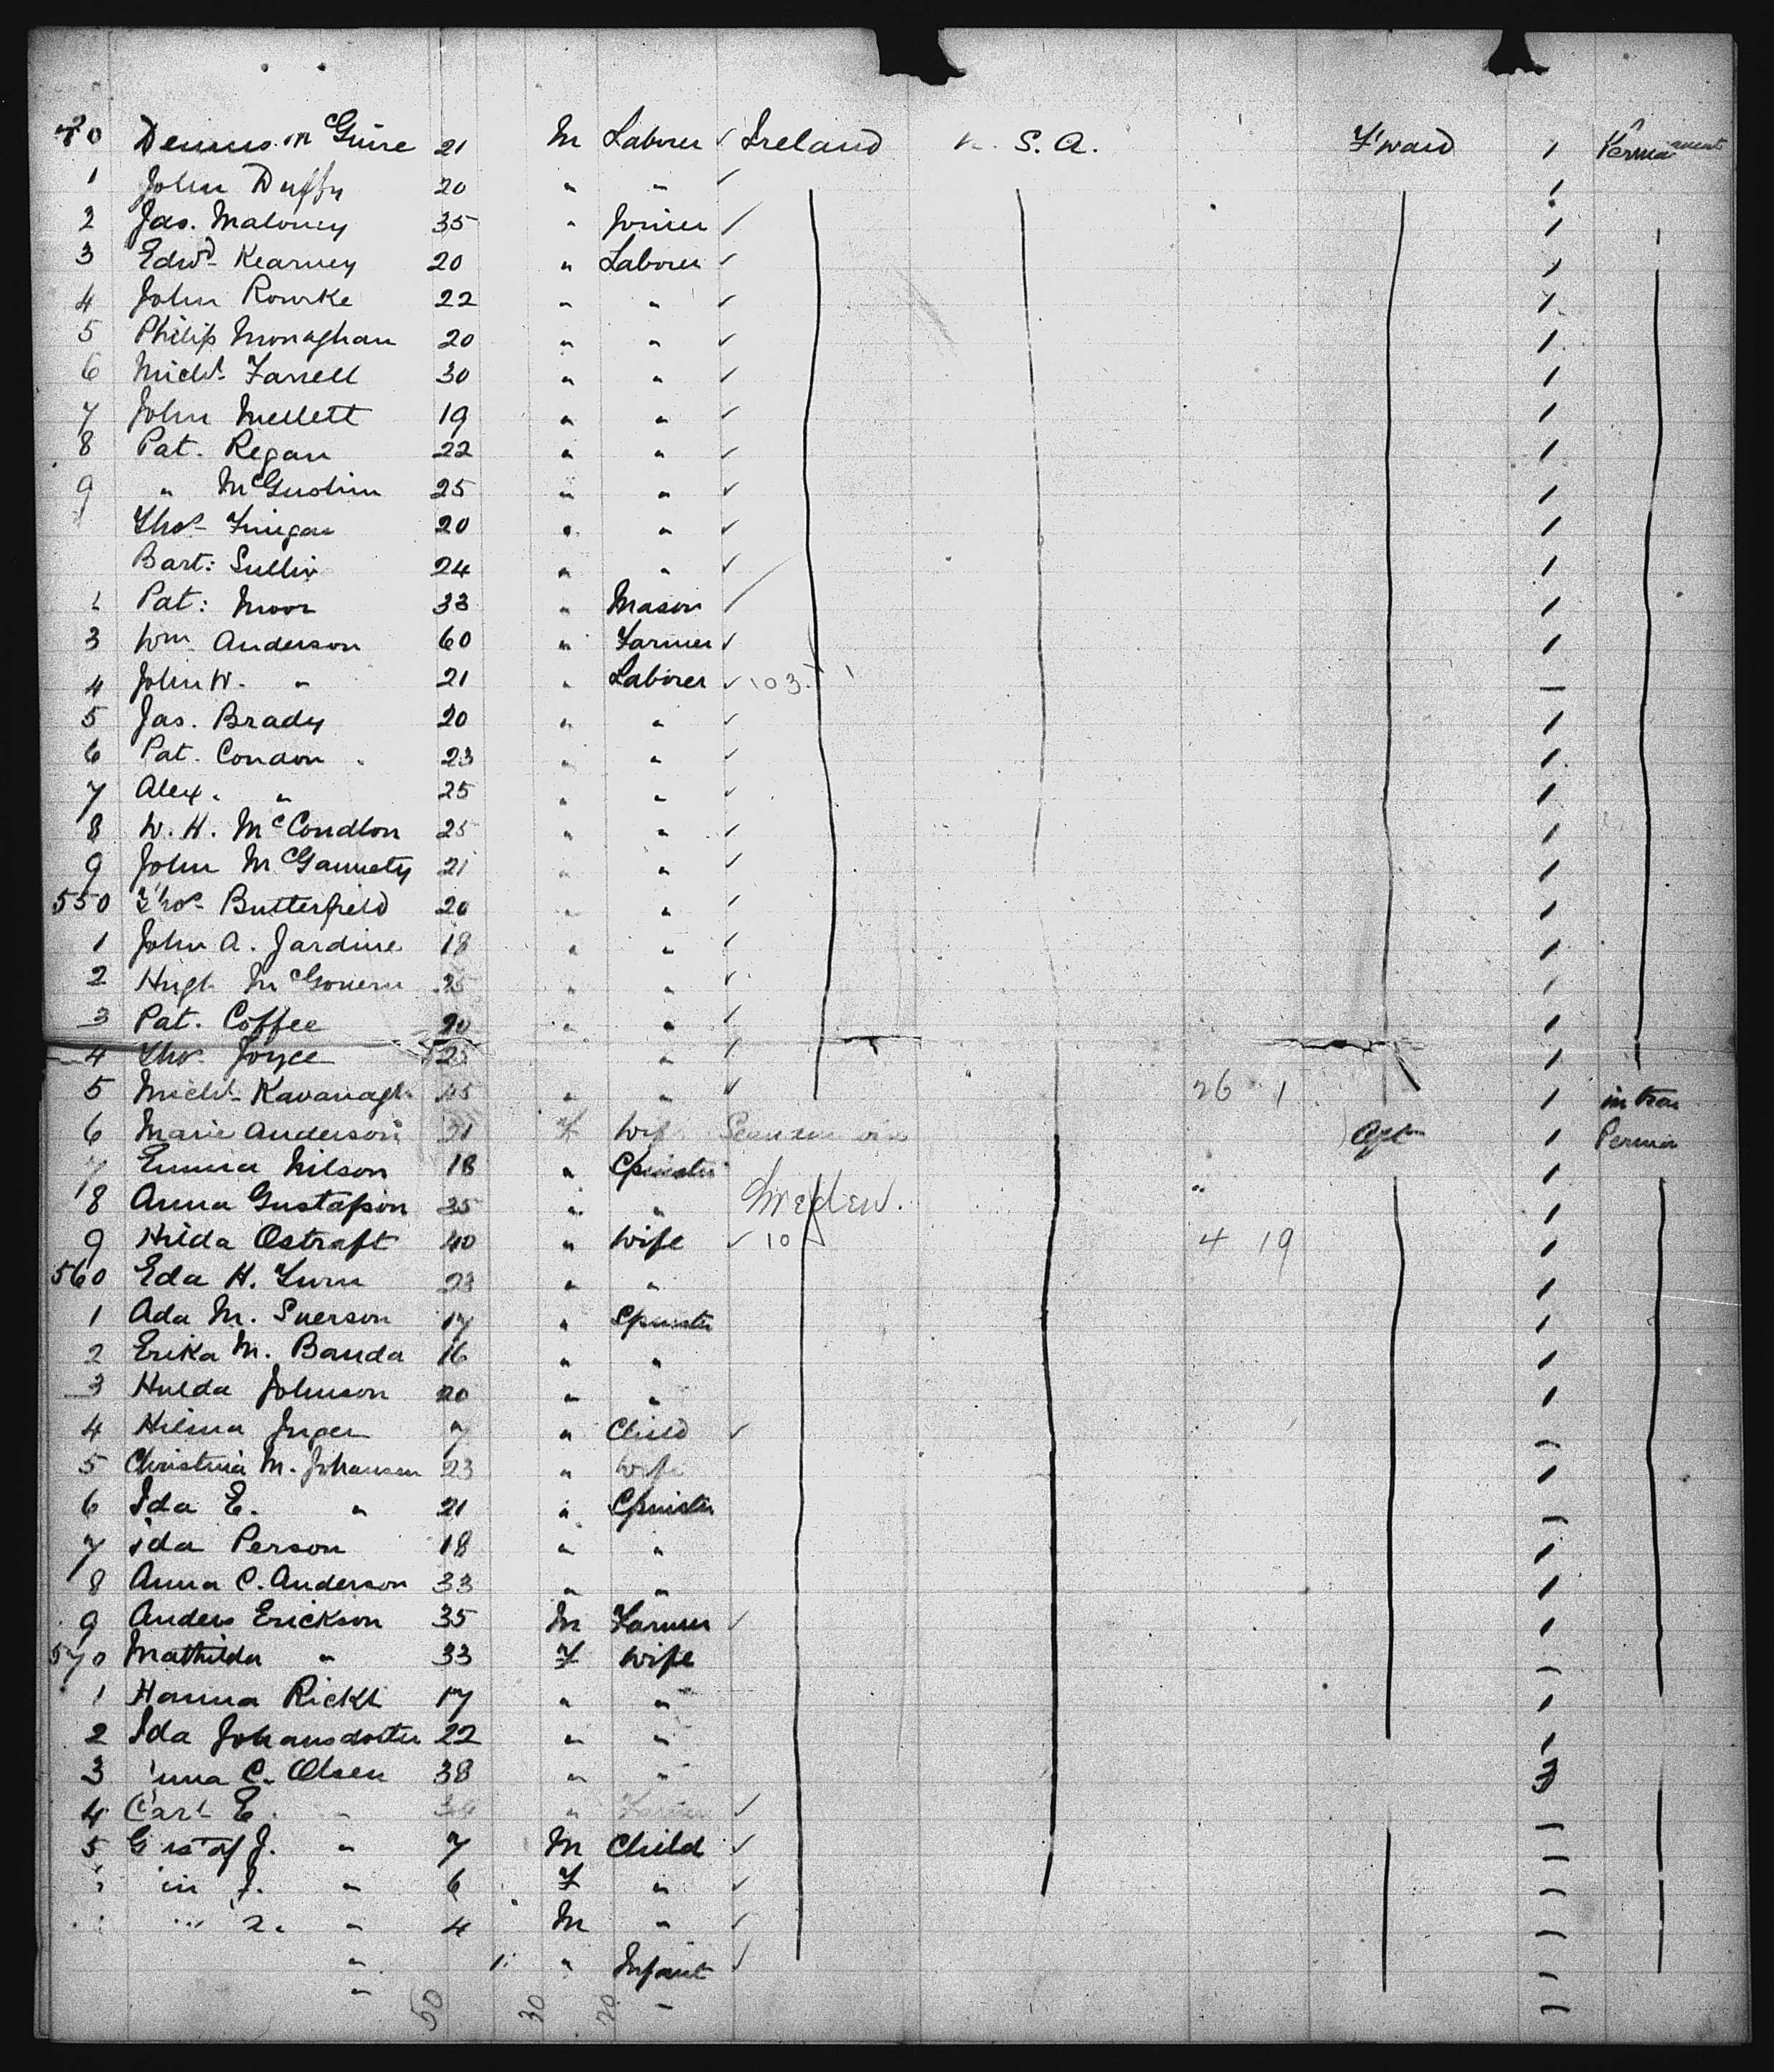 Dennis McGuire 21 M Laborer ✓ Ireland U. S. A. F'ward / Permanent
1 John Duffy 20 " " ✓ /
2 Jas. Maloney 35 " ✓ /
3 Edwd Kearney 20 " Laborer ✓ /
4 John Rourke 22 " " ✓ /
5 Philip Monaghan 20 " " ✓ /
6 Michl Farrell 30 " " ✓ /
7 John Mellett 19 " " ✓ /
8 Pat. Regan 22 " " ✓ /
9 " 25 " " ✓ /
Thos Finigan 20 " " ✓ /
Bart: 24 " " ✓ /
Pat: Moor 33 " Mason ✓ /
3 Wm Anderson 60 " Farmer ✓ /
4 John W. " 21 " Laborer ✓ 103
5 Jas. Brady 20 " " ✓ /
6 Pat. Condon 23 " " ✓ /
7 Alex. " 25 " " ✓ /
8 W. H. McCondlon 25 " " ✓ /
9 John 21 " " ✓ /
550 Thos Butterfield 20 " " ✓ /
1 John A. Jardine 18 " " ✓ /
2 Hugh McGovern 25 " " ✓ /
3 Pat. Coffee 20 " " ✓ /
4 Thos Joyce 25 " ✓ /
5 Michl Kavanagh 45 " " ✓ 26 1 /
6 Marie Anderson F Wife Aft /
7 Emma Nilson 18 " Spinster /
8 Anna Gustafson 35 " " Sweden. /
9 Hilda Ostraft 40 " Wife ✓ 10 4 19 /
560 Eda H. 23 " " /
1 Ada M. 17 " Spinster /
2 Erika M. Banda 16 " " /
3 Hulda Johnson 20 " " /
4 Hilma 7 " Child ✓
5 Christina M. Johansen 23 " Wife /
6 Ida E. " 21 " Spinster
7 Ida Person 18 " " /
8 Anna C. Anderson 33 " " /
9 Anders Erickson 35 M Farmer ✓ /
570 Mathilda " 33 F Wife
1 Hanna 17 " " /
2 Ida Johansdotter 22 " " /
3 C. Olsen 38 " "
4 Carl E. " " ✓
5 Gustaf J. " 7 M Child ✓
" 6 F " ✓
" 4 M " ✓
" " Infant ✓
"
50 30 20